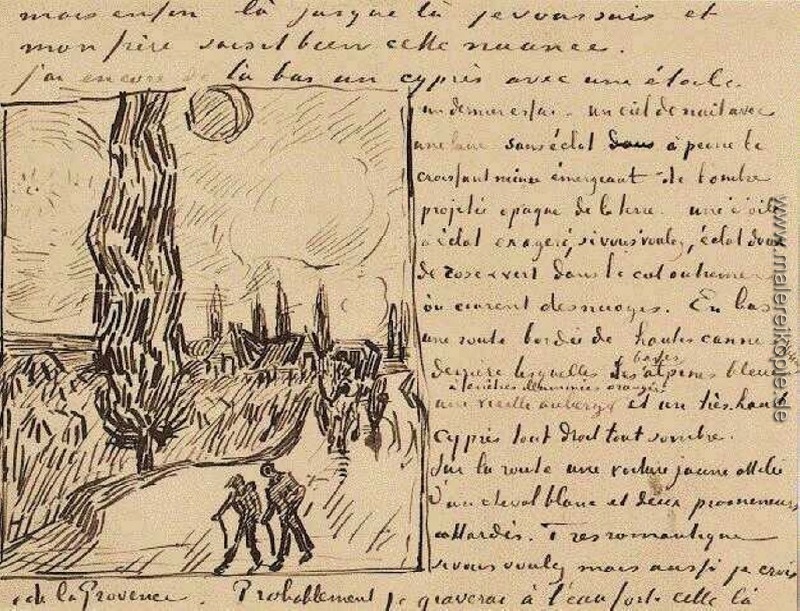 mais enfin là jusque là je vous suis et
mon frère saisit bien cette nuance.
j'ai encore de là bas un cyprès avec une étoile
un dernier essai - un ciel de nuit avec
une lune sans éclat dans à peine le
croissant mince émergeant de l'ombre
projetée opaque de la terre - une étoile
à éclat exagéré, si vous voulez, éclat doux
de rose & vert dans le ciel outremer
où courent des nuages. En bas
une route bordée de hautes cannes
derrière lesquelles les basses alpines bleues
à fenêtres illuminées orangées
une vieille auberge et un très haut
cyprès tout droit tout sombre.
Sur la route une voiture jaune attelée
d'un cheval blanc et deux promeneurs
attardés. Très romantique
si vous voulez mais aussi je crois
de la Provence. Probablement je graverai à l'eau forte celle là
www.malereikopie.de